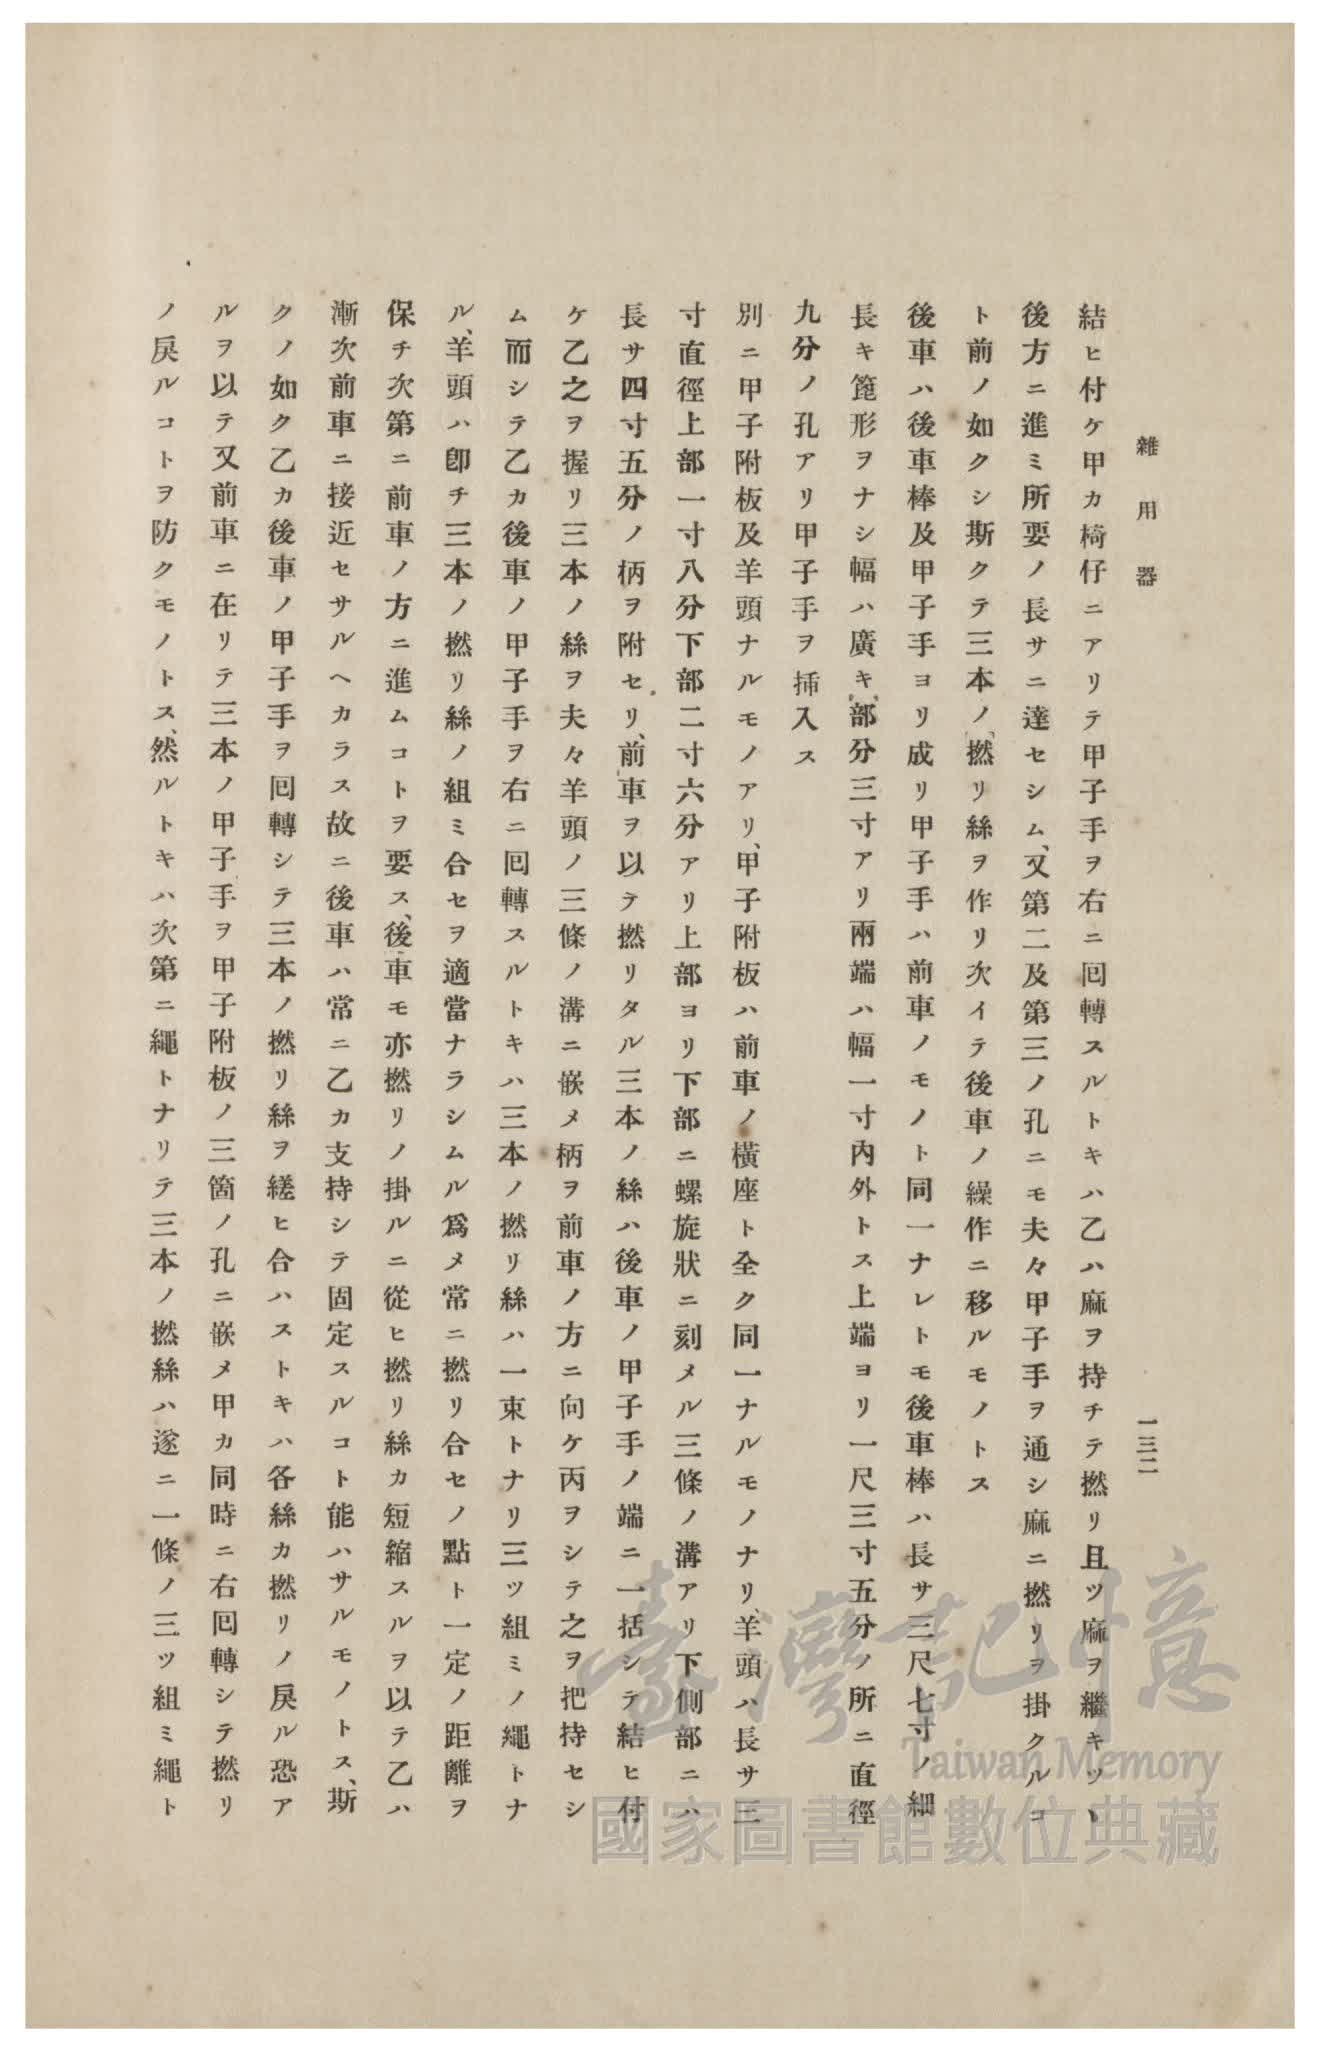 雜用器
一三二
結ヒ付ケ甲カ椅仔ニアリテ甲子手ヲ右ニ囘轉スルトキハ乙ハ麻ヲ持チテ撚リ且ツ麻ヲ繼キツヽ
後方ニ進ミ所要ノ長サニ達セシム、又第二及第三ノ孔ニモ夫々甲子手ヲ通シ麻ニ撚リヲ掛クルコ
ト前ノ如クシ斯クテ三本ノ撚リ絲ヲ作リ次イテ後車ノ繰作ニ移ルモノトス
後車ハ後車棒及甲子手ヨリ成リ甲子手ハ前車ノモノト同一ナレトモ後車棒ハ長サ三尺七寸ノ細
長キ篦形ヲナシ幅ハ廣キ部分三寸アリ兩端ハ幅一寸內外トス上端ヨリ一尺三寸五分ノ所ニ直徑
九分ノ孔アリ甲子手ヲ揷入ス
別ニ甲子附板及羊頭ナルモノアリ、甲子附板ハ前車ノ橫座ト全ク同一ナルモノナリ、羊頭ハ長サ三
寸直徑上部一寸八分下部二寸六分アリ上部ヨリ下部ニ螺旋狀ニ刻メル三條ノ溝アリ下側部ニハ
長サ四寸五分ノ柄ヲ附セリ、前車ヲ以テ撚リタル三本ノ絲ハ後車ノ甲子手ノ端ニ一括シテ結ヒ付
ケ乙之ヲ握リ三本ノ絲ヲ夫々羊頭ノ三條ノ溝ニ嵌メ柄ヲ前車ノ方ニ向ケ丙ヲシテ之ヲ把持セシ
ム而シテ乙カ後車ノ甲子手ヲ右ニ囘轉スルトキハ三本ノ撚リ絲ハ一束トナリ三ツ組ミノ繩トナ
ル、羊頭ハ卽チ三本ノ撚リ絲ノ組ミ合セヲ適當ナラシムル爲メ常ニ撚リ合セノ點ト一定ノ距離ヲ
保チ次第ニ前車ノ方ニ進ムコトヲ要ス、後車モ亦撚リノ掛ルニ從ヒ撚リ絲カ短縮スルヲ以テ乙ハ
漸次前車ニ接近セサルヘカラス故ニ後車ハ常ニ乙カ支持シテ固定スルコト能ハサルモノトス、斯
クノ如ク乙カ後車ノ甲子手ヲ囘轉シテ三本ノ撚リ絲ヲ縒ヒ合ハストキハ各絲カ撚リノ戾ル恐ア
ルヲ以テ又前車ニ在リテ三本ノ甲子手ヲ甲子附板ノ三箇ノ孔ニ嵌メ甲カ同時ニ右囘轉シテ撚リ
ノ戾ルコトヲ防クモノトス、然ルトキハ次第ニ繩トナリテ三本ノ撚絲ハ遂ニ一條ノ三ツ組ミ繩ト
臺灣記憶
Taiwan Memory
國家圖書館數位典藏